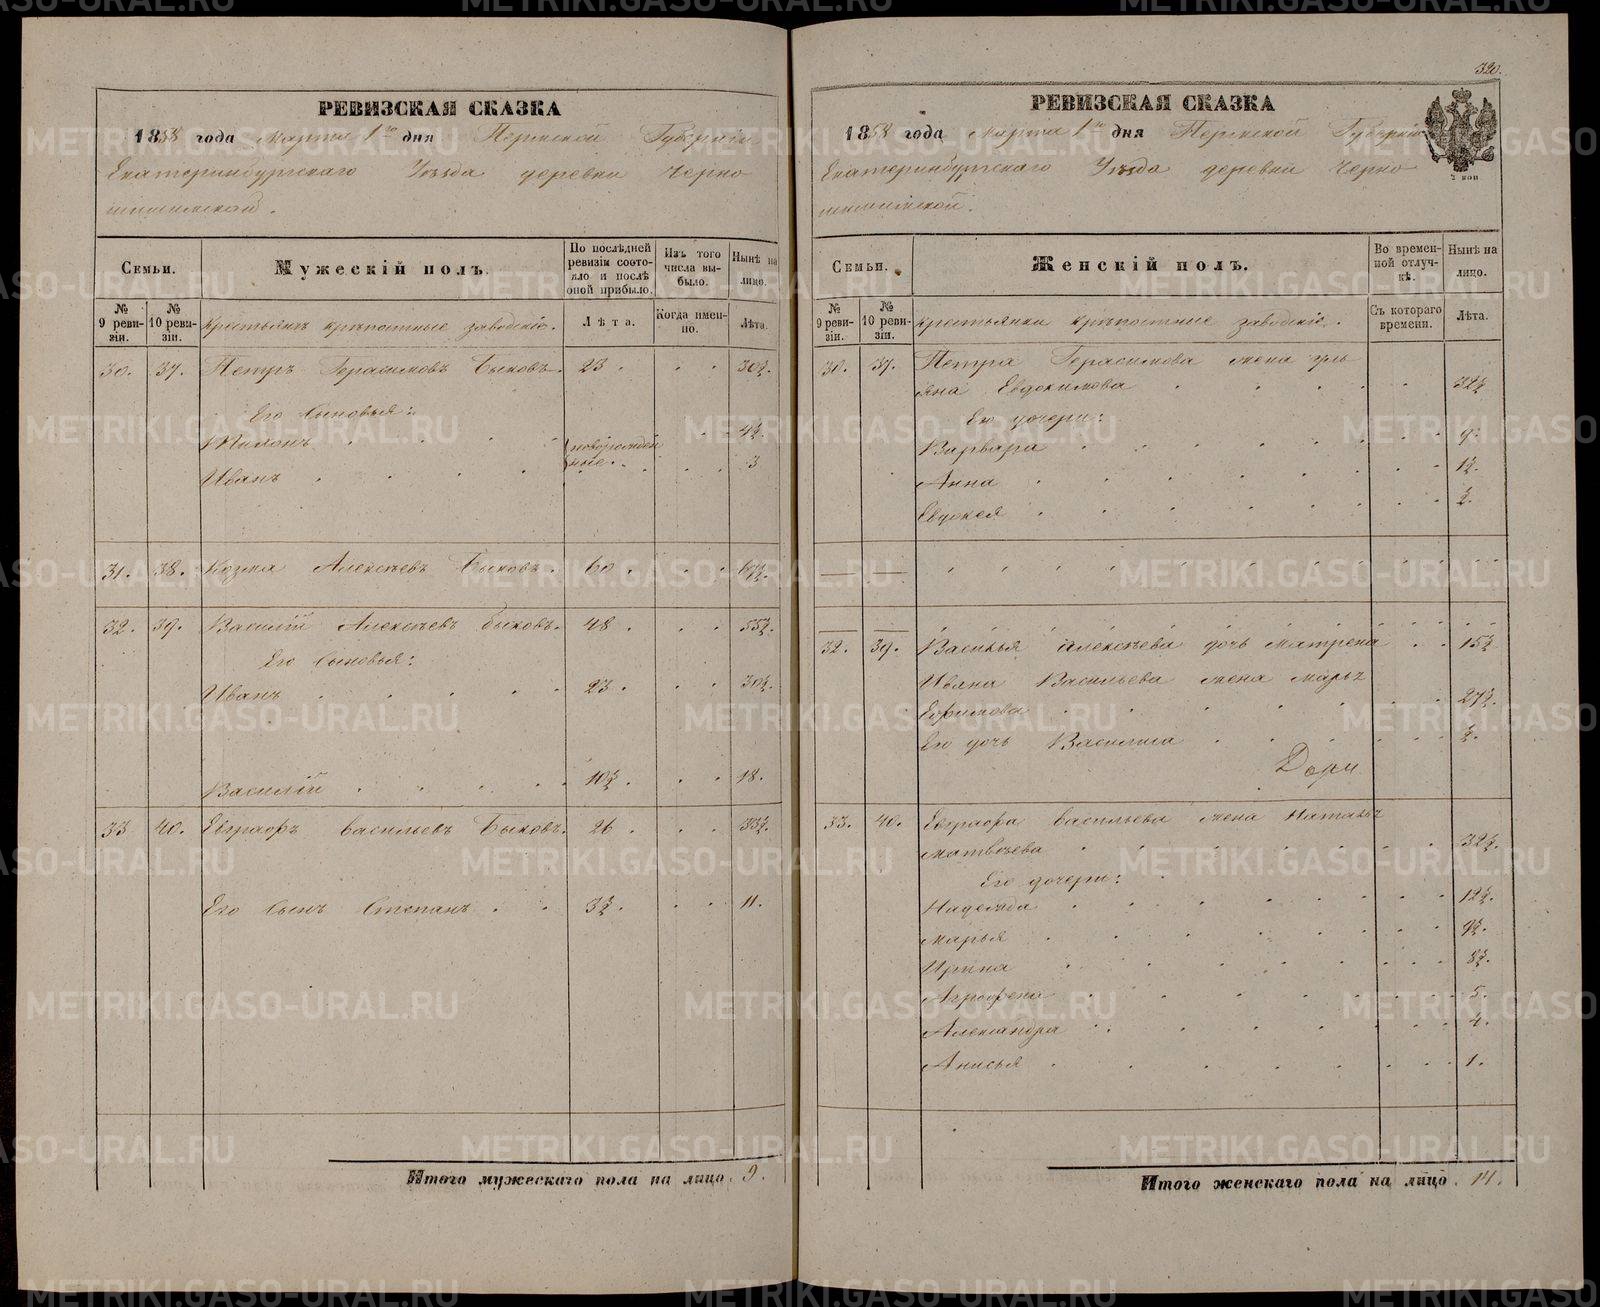 РЕВИЗСКАЯ СКАЗКА
1858 года Марта 1го дня Пермской Губерніи
Екатеринбургскаго Уѣзда деревни Черно
шишимской.
Семьи.
Мужескій полъ.
По послѣдней ревизіи состояло и послѣ оной прибыло.
Изъ того числа выбыло.
Нынѣ на лицо.
№ 9 ревизіи.
№ 10 ревизіи.
Крестьянъ крѣпостные заводскіе.
Лѣта.
Когда именно.
Лѣта.
30. 37. Петръ Герасимовъ Быковъ. 23. 30½.
Его Сыновья:
Филонъ новорожден 4½.
Иванъ ные. 3
31. 38. Козма Алексѣевъ Быковъ. 60. 67½.
32. 39. Василій Алексѣевъ Быковъ. 48. 55½.
Его Сыновья:
Иванъ 23. 30½.
Василій 10½. 18.
33 40. Евграфъ Васильевъ Быковъ. 26. 33½.
Его Сынъ Степанъ 3½. 11.
Итого мужескаго пола на лицо. 9.
320.
РЕВИЗСКАЯ СКАЗКА
1858 года Марта 1го дня Пермской Губерніи
Екатеринбургскаго Уѣзда деревни Черно
шишимской.
2 коп
Семьи.
Женскій полъ.
Во временной отлучкѣ.
Нынѣ на лицо.
№ 9 ревизіи.
№ 10 ревизіи.
Крестьянки крѣпостные заводскіе.
Съ котораго времени.
Лѣта.
30. 37. Петра Герасимова жена Уль
яна Евдокимова 32½
Его дочери:
Варвара 9.
Анна 1½.
Евдокея ½.
32. 39. Василья Алексѣева дочь Матрена 15½
Ивана Васильева жена Марья
Ефимова 27½.
Его дочь Василиса ½.
33. 40. Евграфа Васильева жена Наталья
Матвѣева 32½.
Его дочери:
Надежда 12½.
Марья 9½.
Ирина 8½.
Аграфена 5.
Александра 4.
Анисья 1.
Итого женскаго пола на лицо. 14.
METRIKI.GASO-URAL.RU